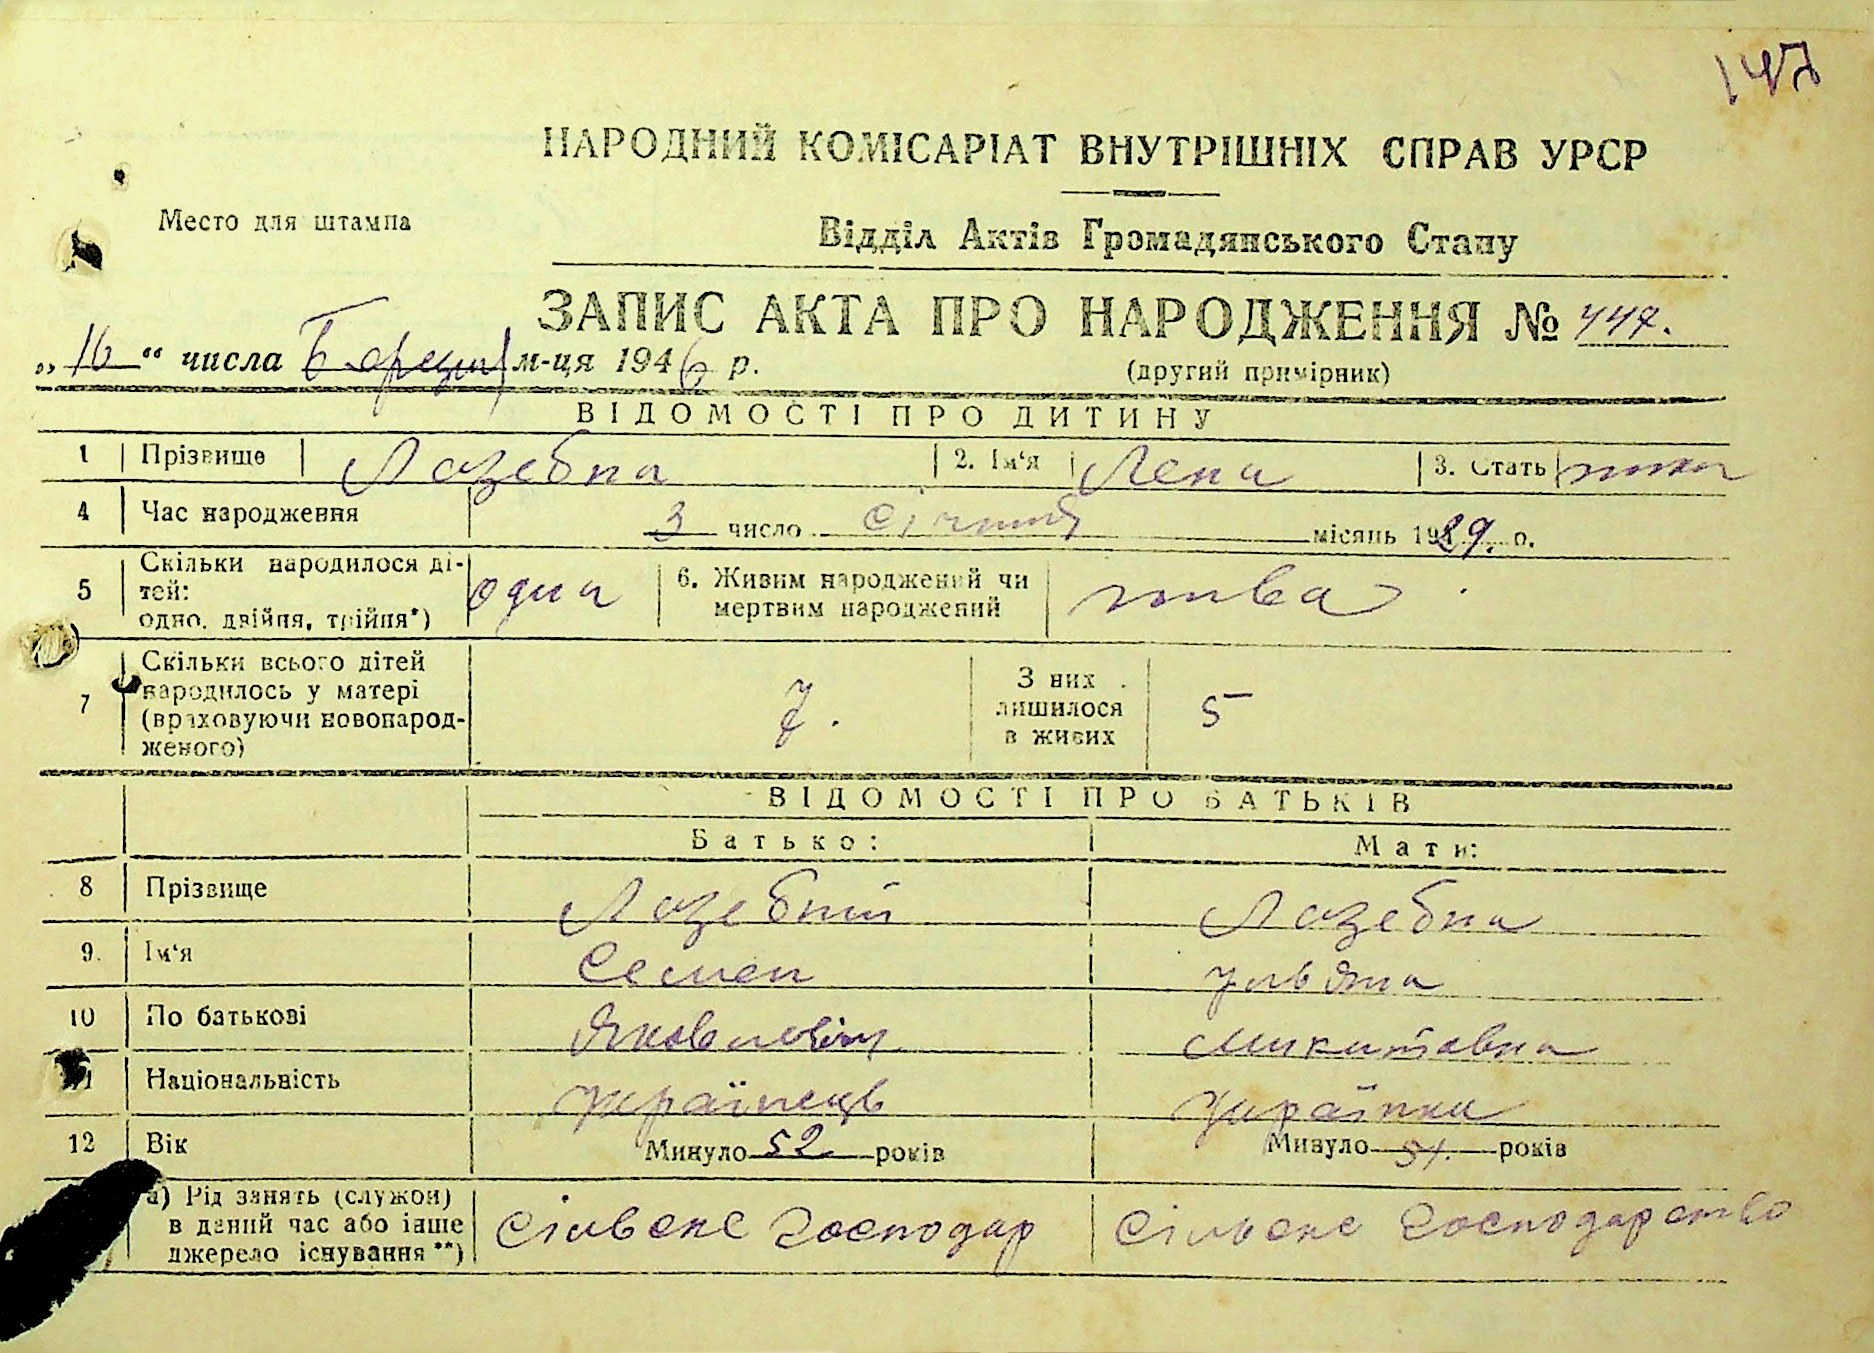 147
НАРОДНИЙ КОМІСАРІАТ ВНУТРІШНІХ СПРАВ УРСР
Место для штампа
Відділ Актів Громадянського Стану
ЗАПИС АКТА ПРО НАРОДЖЕННЯ № 447.
„16“ числа Березня м-ця 1946 р.
(другий примірник)
ВІДОМОСТІ ПРО ДИТИНУ
1 Прізвище Лазебна 2. Ім‘я Лена 3. Стать жіноч
4 Час народження 3 число січня місяць 1929. р.
5 Скільки народилося дітей: одно, двійня, трійня*) одна 6. Живим народжений чи мертвим народжений жива
7 Скільки всього дітей народилось у матері (враховуючи новонародженого) 7. З них лишилося в живих 5
ВІДОМОСТІ ПРО БАТЬКІВ
Батько: Мати:
8 Прізвище Лазебний Лазебна
9. Ім‘я Семен Ульяна
10 По батькові Яковлевіч Микитовна
11 Національність Українець Українка
12 Вік Минуло 52 років Минуло 51. років
а) Рід занять (служби) в даний час або інше джерело існування **) Сільске господар Сільске господарство